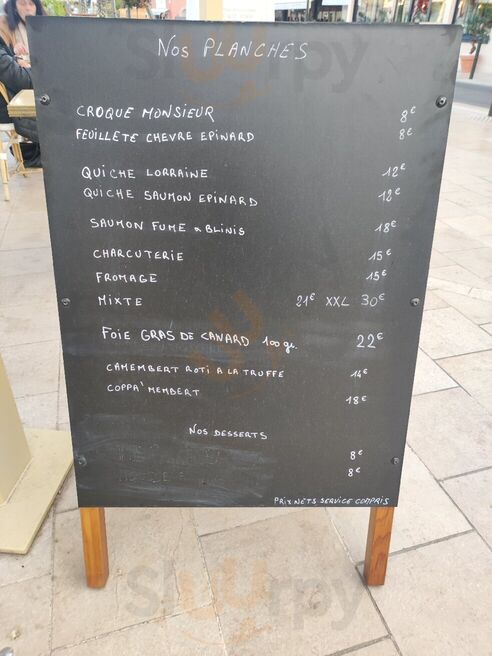 Nos PLANCHES
CROQUE MONSIEUR 8€
FEUILLETE CHEVRE EPINARD 8€
QUICHE LORRAINE 12€
QUICHE SAUMON EPINARD 12€
SAUMON FUME & BLINIS 18€
CHARCUTERIE 15€
FROMAGE 15€
MIXTE 21€ XXL 30€
FOIE GRAS DE CANARD 100gr. 22€
CAMEMBERT ROTI A LA TRUFFE 14€
COPPA'MEMBERT 18€
NOS DESSERTS
8€
8€
PRIX NETS SERVICE COMPRIS
Sluurpy
Sluurpy